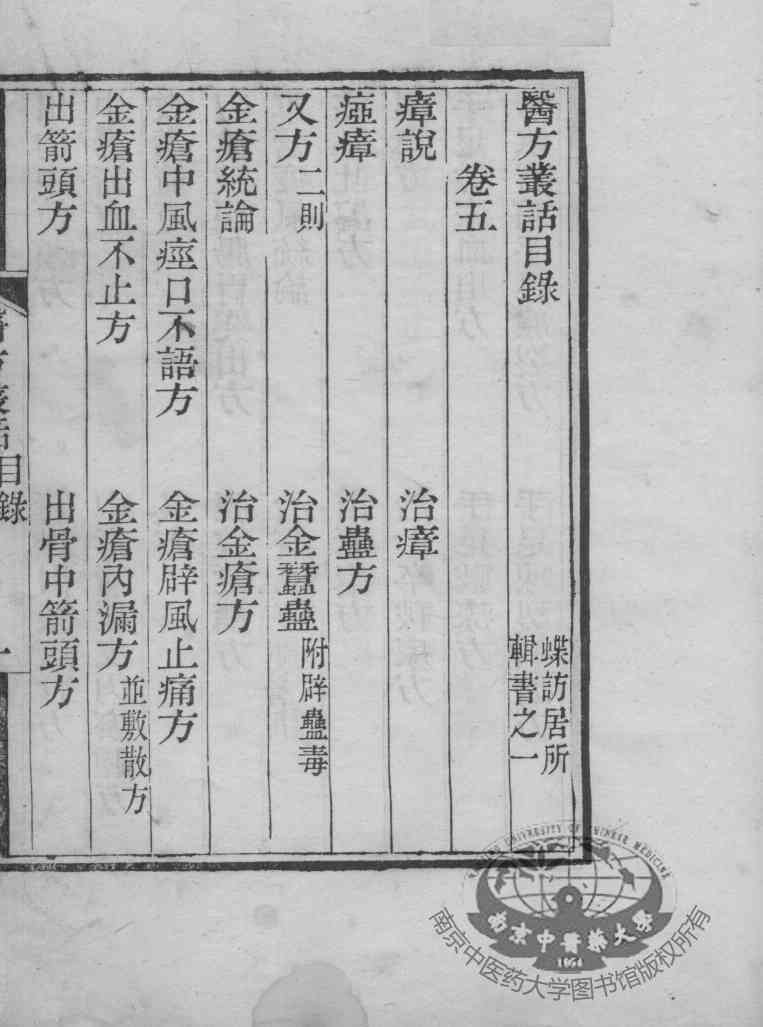 醫方叢話目錄
蝶訪居所
輯書之一
卷五
瘴說
治瘴
瘂瘴
治蠱方
又方二則
治金蠶蠱附辟蠱毒
金瘡統論
治金瘡方
金瘡中風痙口不語方
金瘡辟風止痛方
金瘡出血不止方
金瘡內漏方並敷散方
出箭頭方
出骨中箭頭方
醫方叢話目錄
一
NANJING UNIVERSITY OF CHINESE MEDICINE
南京中醫藥大學
1954
南京中医药大学图书馆版权所有